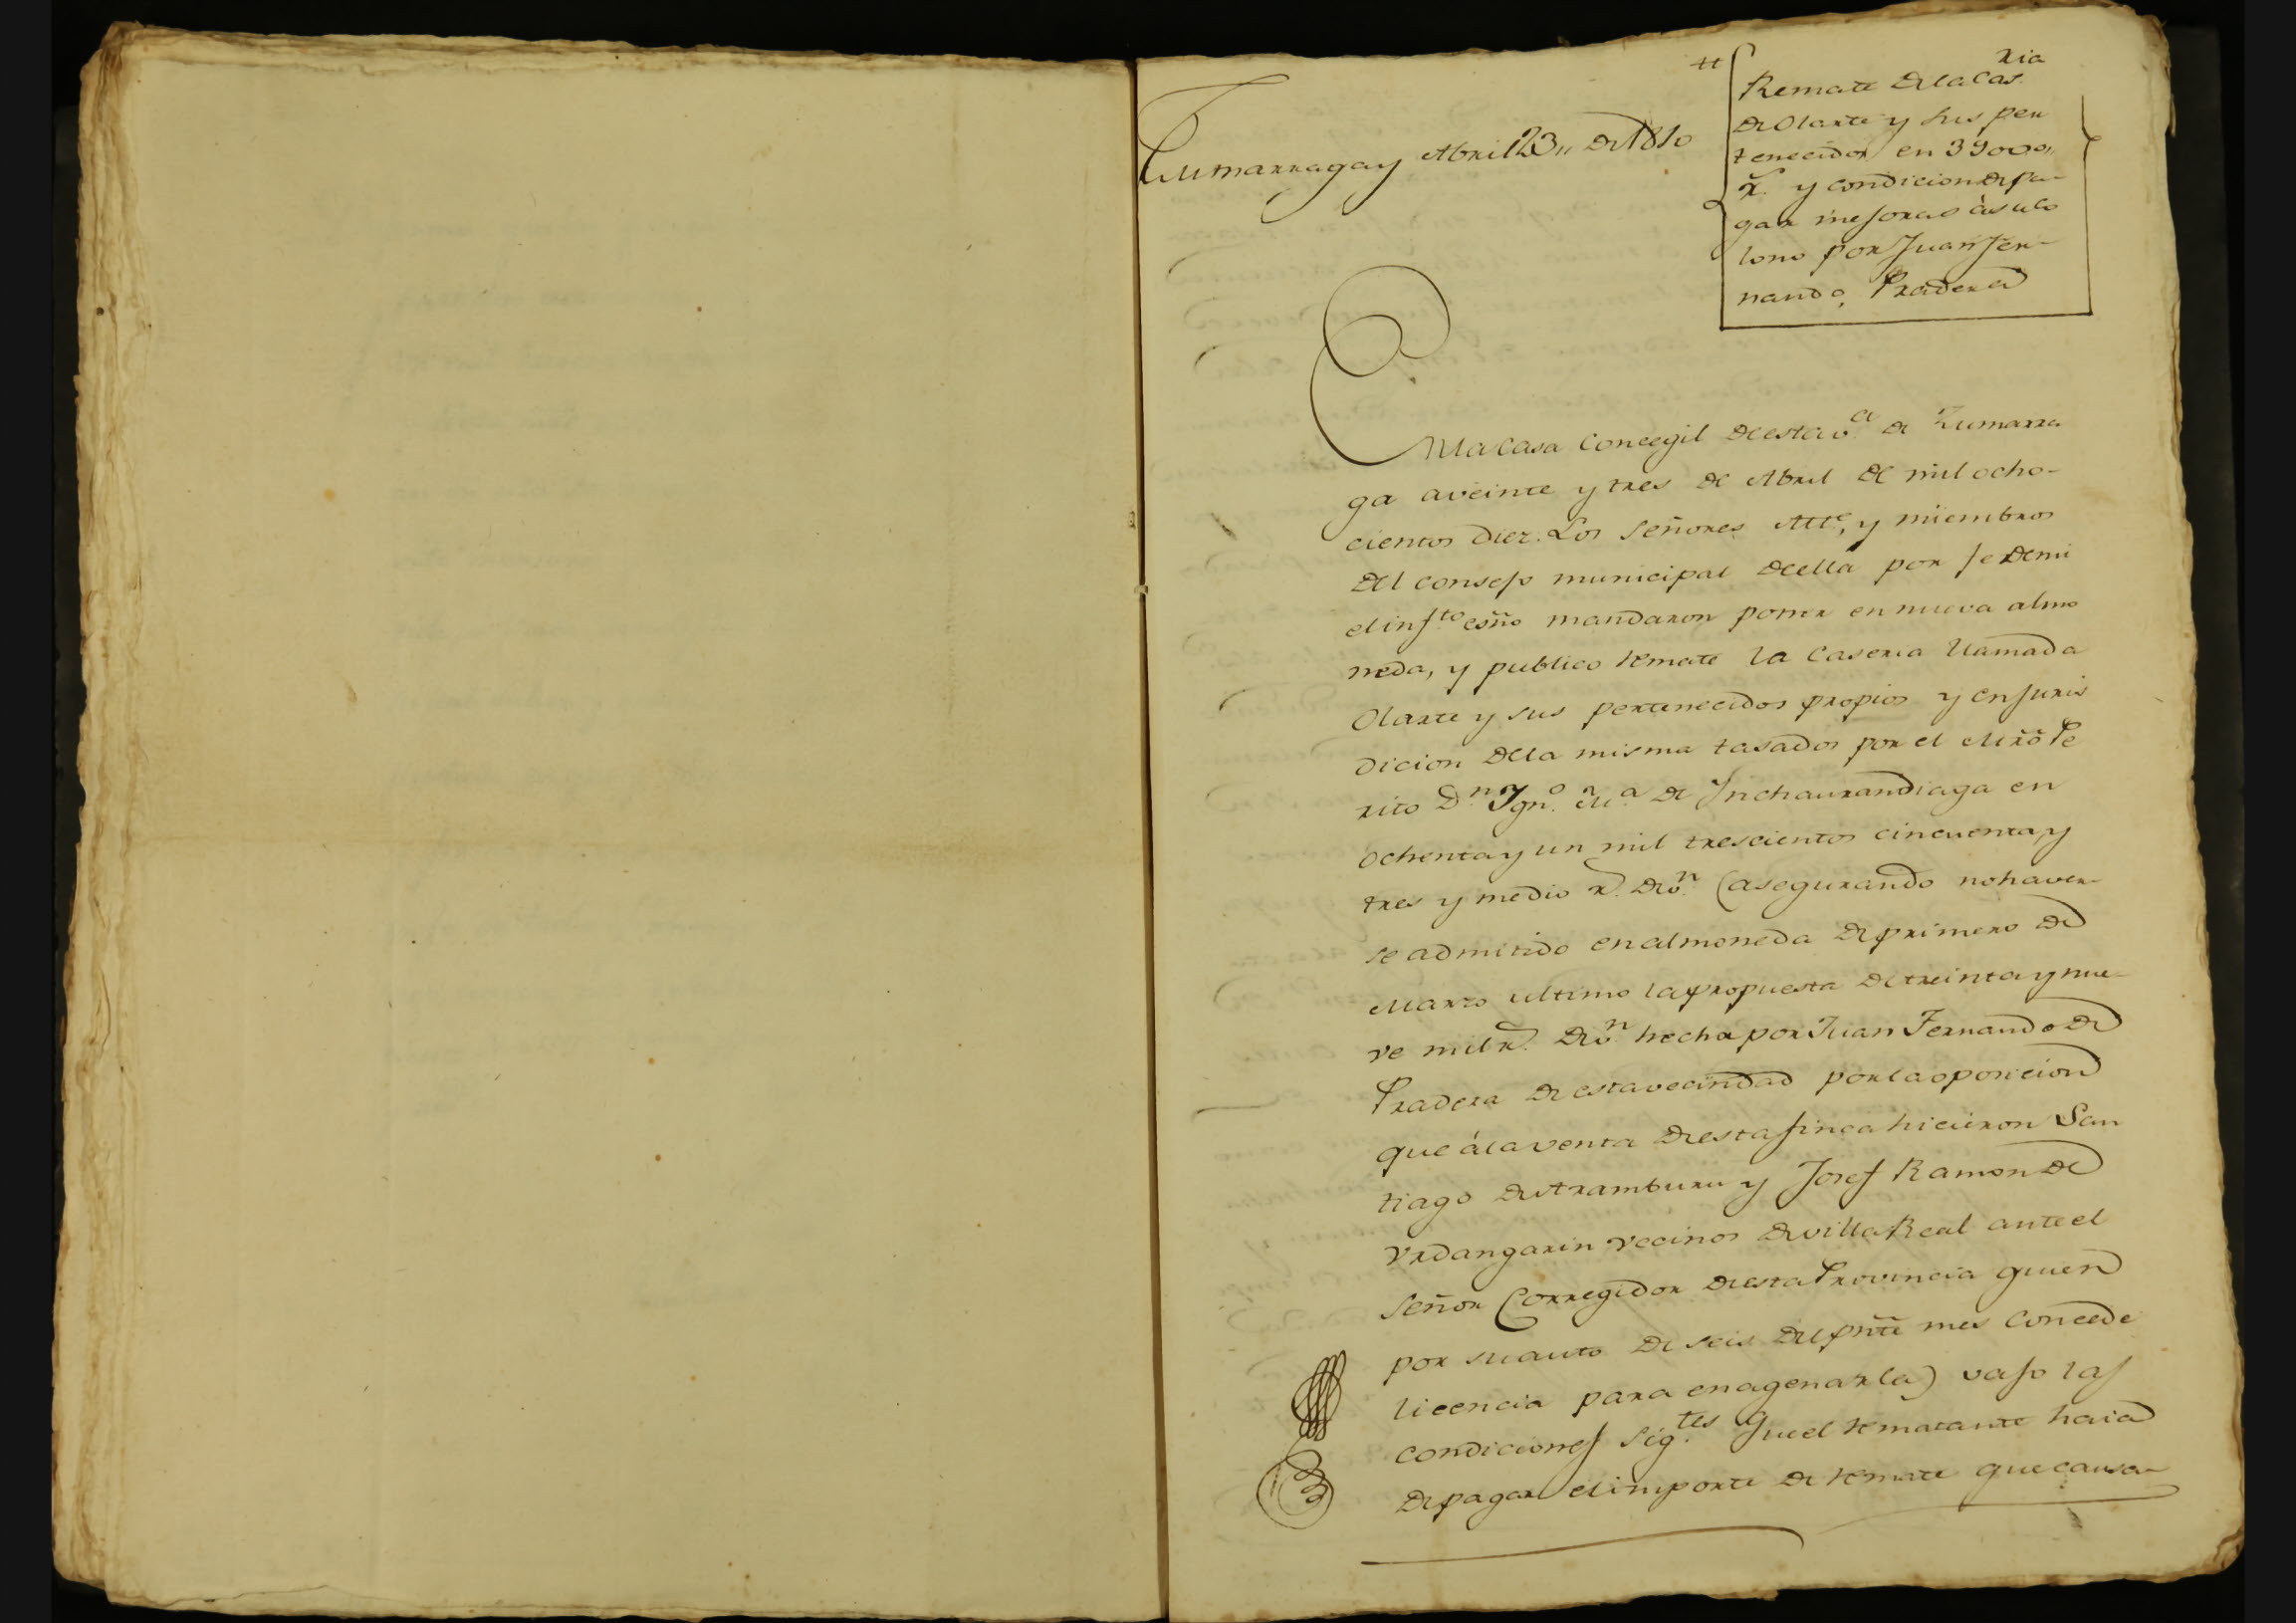 Zumarraga y Abril 23,, de 1810
Remate de la Cas.ria
de Olarte y sus per
tenecidos en 39000,,
r.s y condicion de pa-
gar mejoras à su co
lono por Juan Fer-
nando Pradera
En la Casa Concegil de esta v.a de Zumarra
ga a veinte y tres de Abril de mil ocho-
cientos diez. Los Señores Alc.e, y miembros
del consejo municipal de ella por fe de mi
el inf.to esño mandaron poner en nueva almo
neda, y publico remate la Caseria llamada
Olarte y sus pertenecidos propios y en juris
dicion de la misma tasados por el Mrõ Pe
rito D.n Ign.o M.a de Inchaurandiaga en
ochenta y un mil trescientos cincuenta y
tres y medio r.s de v.n (asegurando no haver-
se admitido en almoneda de primero de
Marzo ultimo la propuesta de treinta y nue-
ve mil r.s de v.n hecha por Juan Fernando de
Pradera de esta vecindad por la oposicion
que à la venta de esta finca hicieron San
tiago de Aramburu y Josef Ramon de
Urdangarin vecinos de villa Real ante el
Señor Corregidor de esta Provincia quien
por su auto de seis del pñte mes Concede
licencia para enagenarla) vajo las
condiciones sig.tes Que el rematante haia
de pagar el importe de remate que causa-